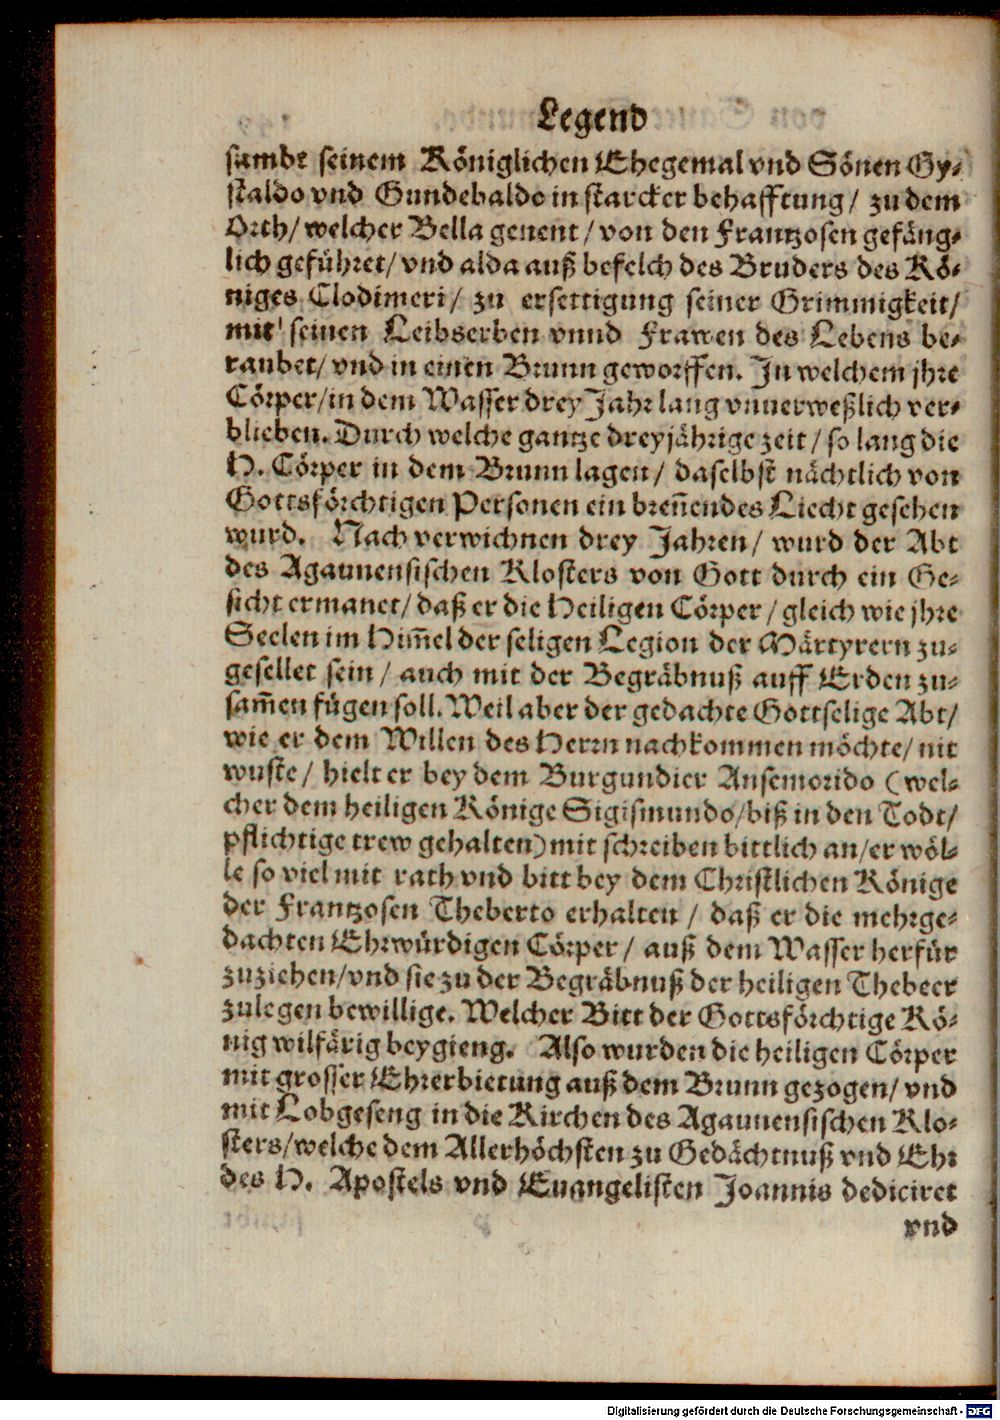 Legend
sambt seinem Königlichen Ehegemal vnd Sönen Gy-
staldo vnd Gundebaldo in starcker behafftung / zu dem
Orth / welcher Bella genent / von den Frantzosen gefäng-
lich geführet / vnd alda auß befelch des Bruders des Kö-
niges Clodimeri / zu ersettigung seiner Grimmigkeit /
mit seinen Leibserben vnnd Frawen des Lebens be-
raubet / vnd in einen Brunn geworffen. In welchem jhre
Cörper / in dem Wasser drey Jahr lang vnuerweßlich ver-
blieben. Durch welche gantze dreyjährige zeit / so lang die
H. Cörper in dem Brunn lagen / daselbst nächtlich von
Gottsförchtigen Personen ein breñendes Liecht gesehen
wurd. Nach verwichnen drey Jahren / wurd der Abt
des Agaunensischen Klosters von Gott durch ein Ge-
sicht ermanet / daß er die Heiligen Cörper / gleich wie jhre
Seelen im Him̃el der seligen Legion der Märtyrern zu-
gesellet sein / auch mit der Begräbnuß auff Erden zu-
sam̃en fügen soll. Weil aber der gedachte Gottselige Abt /
wie er dem Willen des Herrn nachkommen möchte / nit
wuste / hielt er bey dem Burgundier Ansemorido (wel-
cher dem heiligen Könige Sigismundo / biß in den Todt /
pflichtige trew gehalten) mit schreiben bittlich an / er wöl-
le so viel mit rath vnd bitt bey dem Christlichen Könige
der Frantzosen Theberto erhalten / daß er die mehrge-
dachten Ehrwürdigen Cörper / auß dem Wasser herfür
zuziehen / vnd sie zu der Begräbnuß der heiligen Thebeer
zulegen bewillige. Welcher Bitt der Gottsförchtige Kö-
nig wilfärig beygieng. Also wurden die heiligen Cörper
mit grosser Ehrerbietung auß dem Brunn gezogen / vnd
mit Lobgeseng in die Kirchen des Agaunensischen Klo-
sters / welche dem Allerhöchsten zu Gedächtnuß vnd Ehr
des H. Apostels vnd Euangelisten Joannis dediciret
vnd
Digitalisierung gefördert durch die Deutsche Forschungsgemeinschaft - DFG